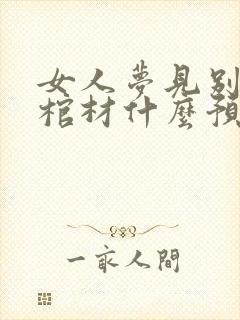 女人夢見別
棺材什麼預
一家人間